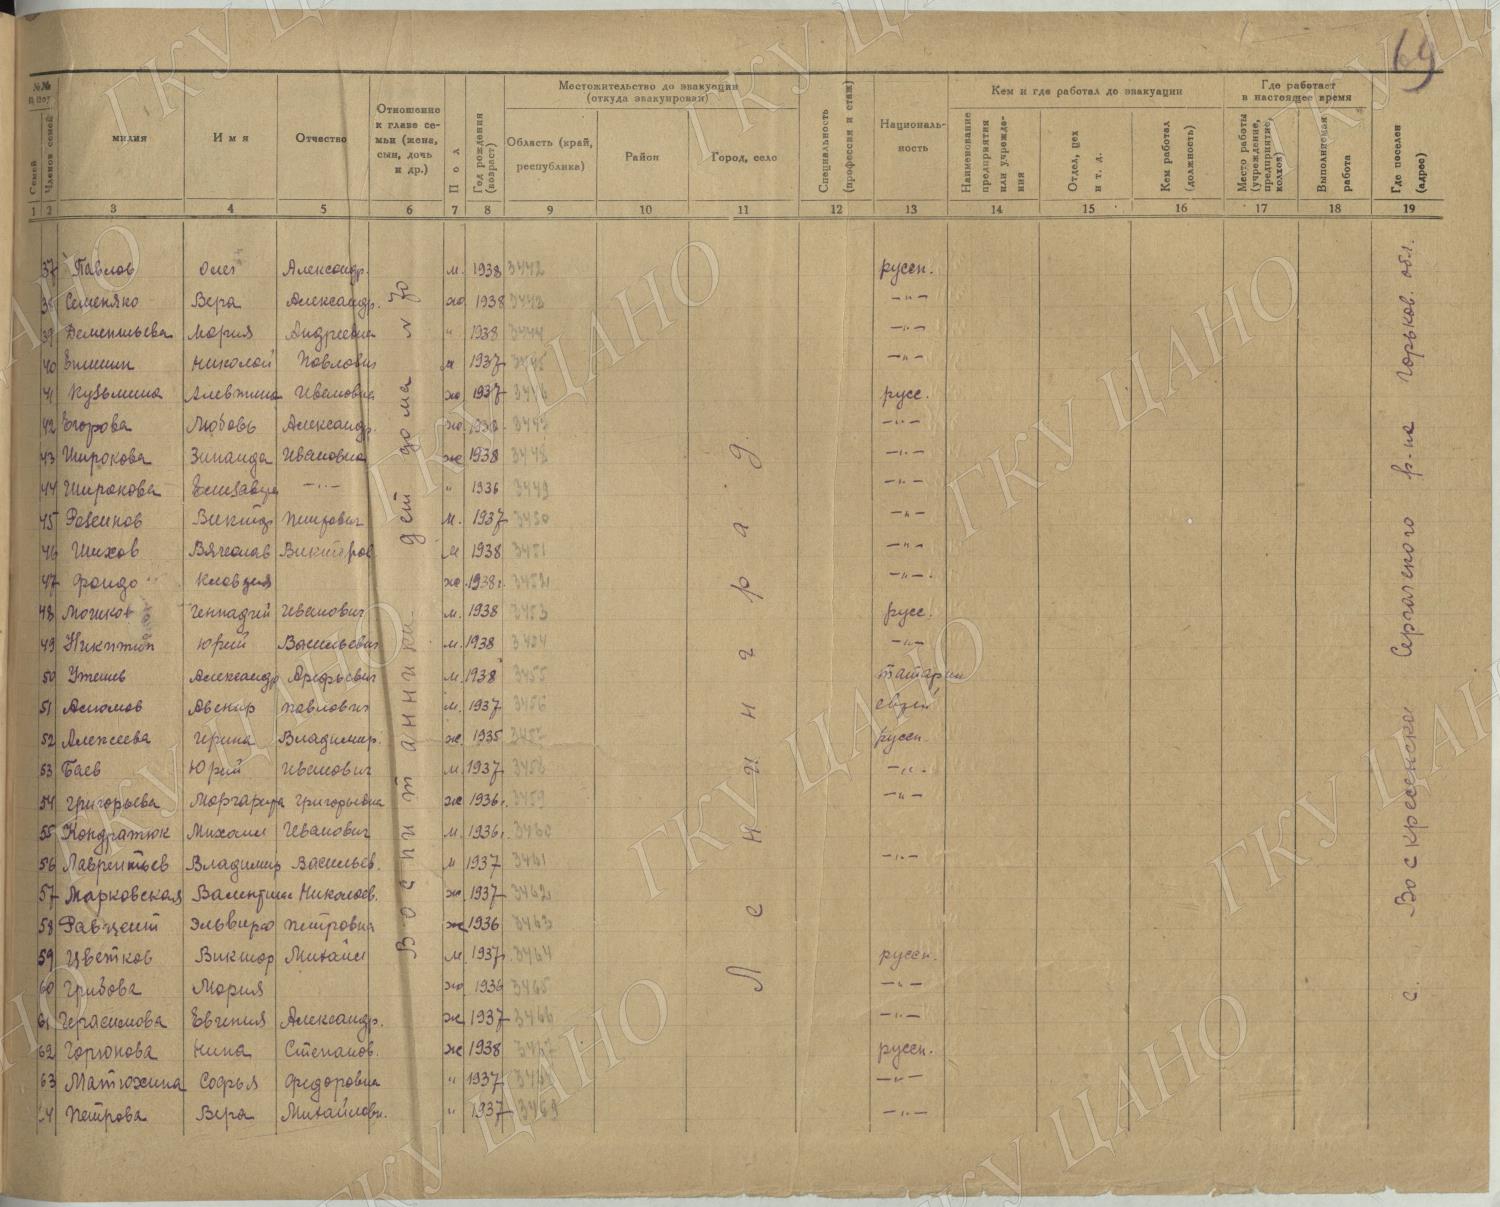 69
№№ п/п
Семей
Членов семей
милия
Имя
Отчество
Отношение к главе семьи (жена, сын, дочь и др.)
Пол
Год рождения (возраст)
Местожительство до эвакуации (откуда эвакуирован)
Область (край, республика)
Район
Город, село
Специальность (профессия и стаж)
Националь-ность
Кем и где работал до эвакуации
Наименование предприятия или учреждения
Отдел, цех и т. д.
Кем работал (должность)
Где работает в настоящее время
Место работы (учреждение, предприятие, колхоз)
Выполняемая работа
Где поселен (адрес)
1 2 3 4 5 6 7 8 9 10 11 12 13 14 15 16 17 18 19
Воспитанники дет дома № 70
Ленинград.
с. Воскресенска Сергачского р-на Горьков. обл.
37 Павлов Олег Александр. м. 1938 3442 русск.
38 Семеняко Вера Александр. ж 1938 3443 -"-
39 Дементьева Мария Андреевна " 1938 3444 -"-
40 Николай Павлович м 1937 3445 -"-
41 Кузьмина Алевтина Ивановна ж 1937 3446 русс.
42 Егорова Любовь Александр. ж 1938 -"-
43 Широкова Зинаида Ивановна ж 1938 3448 -"-
44 Широкова Елизавета -"- " 1936 3449 -"-
45 Виктор Петрович м. 1937 3450 -"-
46 Шихов Вячеслав Викторов. м 1938 3451 -"-
47 Клавдия ж 1938г. 3452 -"-
48 Геннадий Иванович м. 1938 3453 русс.
49 Никитин Юрий Васильевич м. 1938 3454 -"-
50 Александр м. 1938 3455 татарин
51 Авенир Павлович м. 1937 3456
52 Алексеева Ирина Владимир. ж. 1935 3457 русск.
53 Баев Юрий Иванович м. 1937 3458 -"-
54 Григорьева Маргарита Григорьевна ж 1936г. 3459 -"-
55 Кондратюк Михаил Иванович м. 1936г. 3460
56 Лаврентьев Владимир Васильев. м 1937 3461 -"-
57 Марковская Валентина Николаев. ж. 1937 3462
58 Эльвира Петровна ж 1936 3463
59 Цветков Виктор Михайл м. 1937г. 3464 русск.
60 Грибова Мария ж 1936 3465 -"-
61 Герасимова Евгения Александр. ж 1937 3466 -"-
62 Горюнова Нина Степанов. ж 1938 3467 русск.
63 Матюхина Софья Федоровна " 1937 3468 -"-
64 Петрова Вера Михайловн. " 1937 3469 -"-
ГКУ ЦАНО